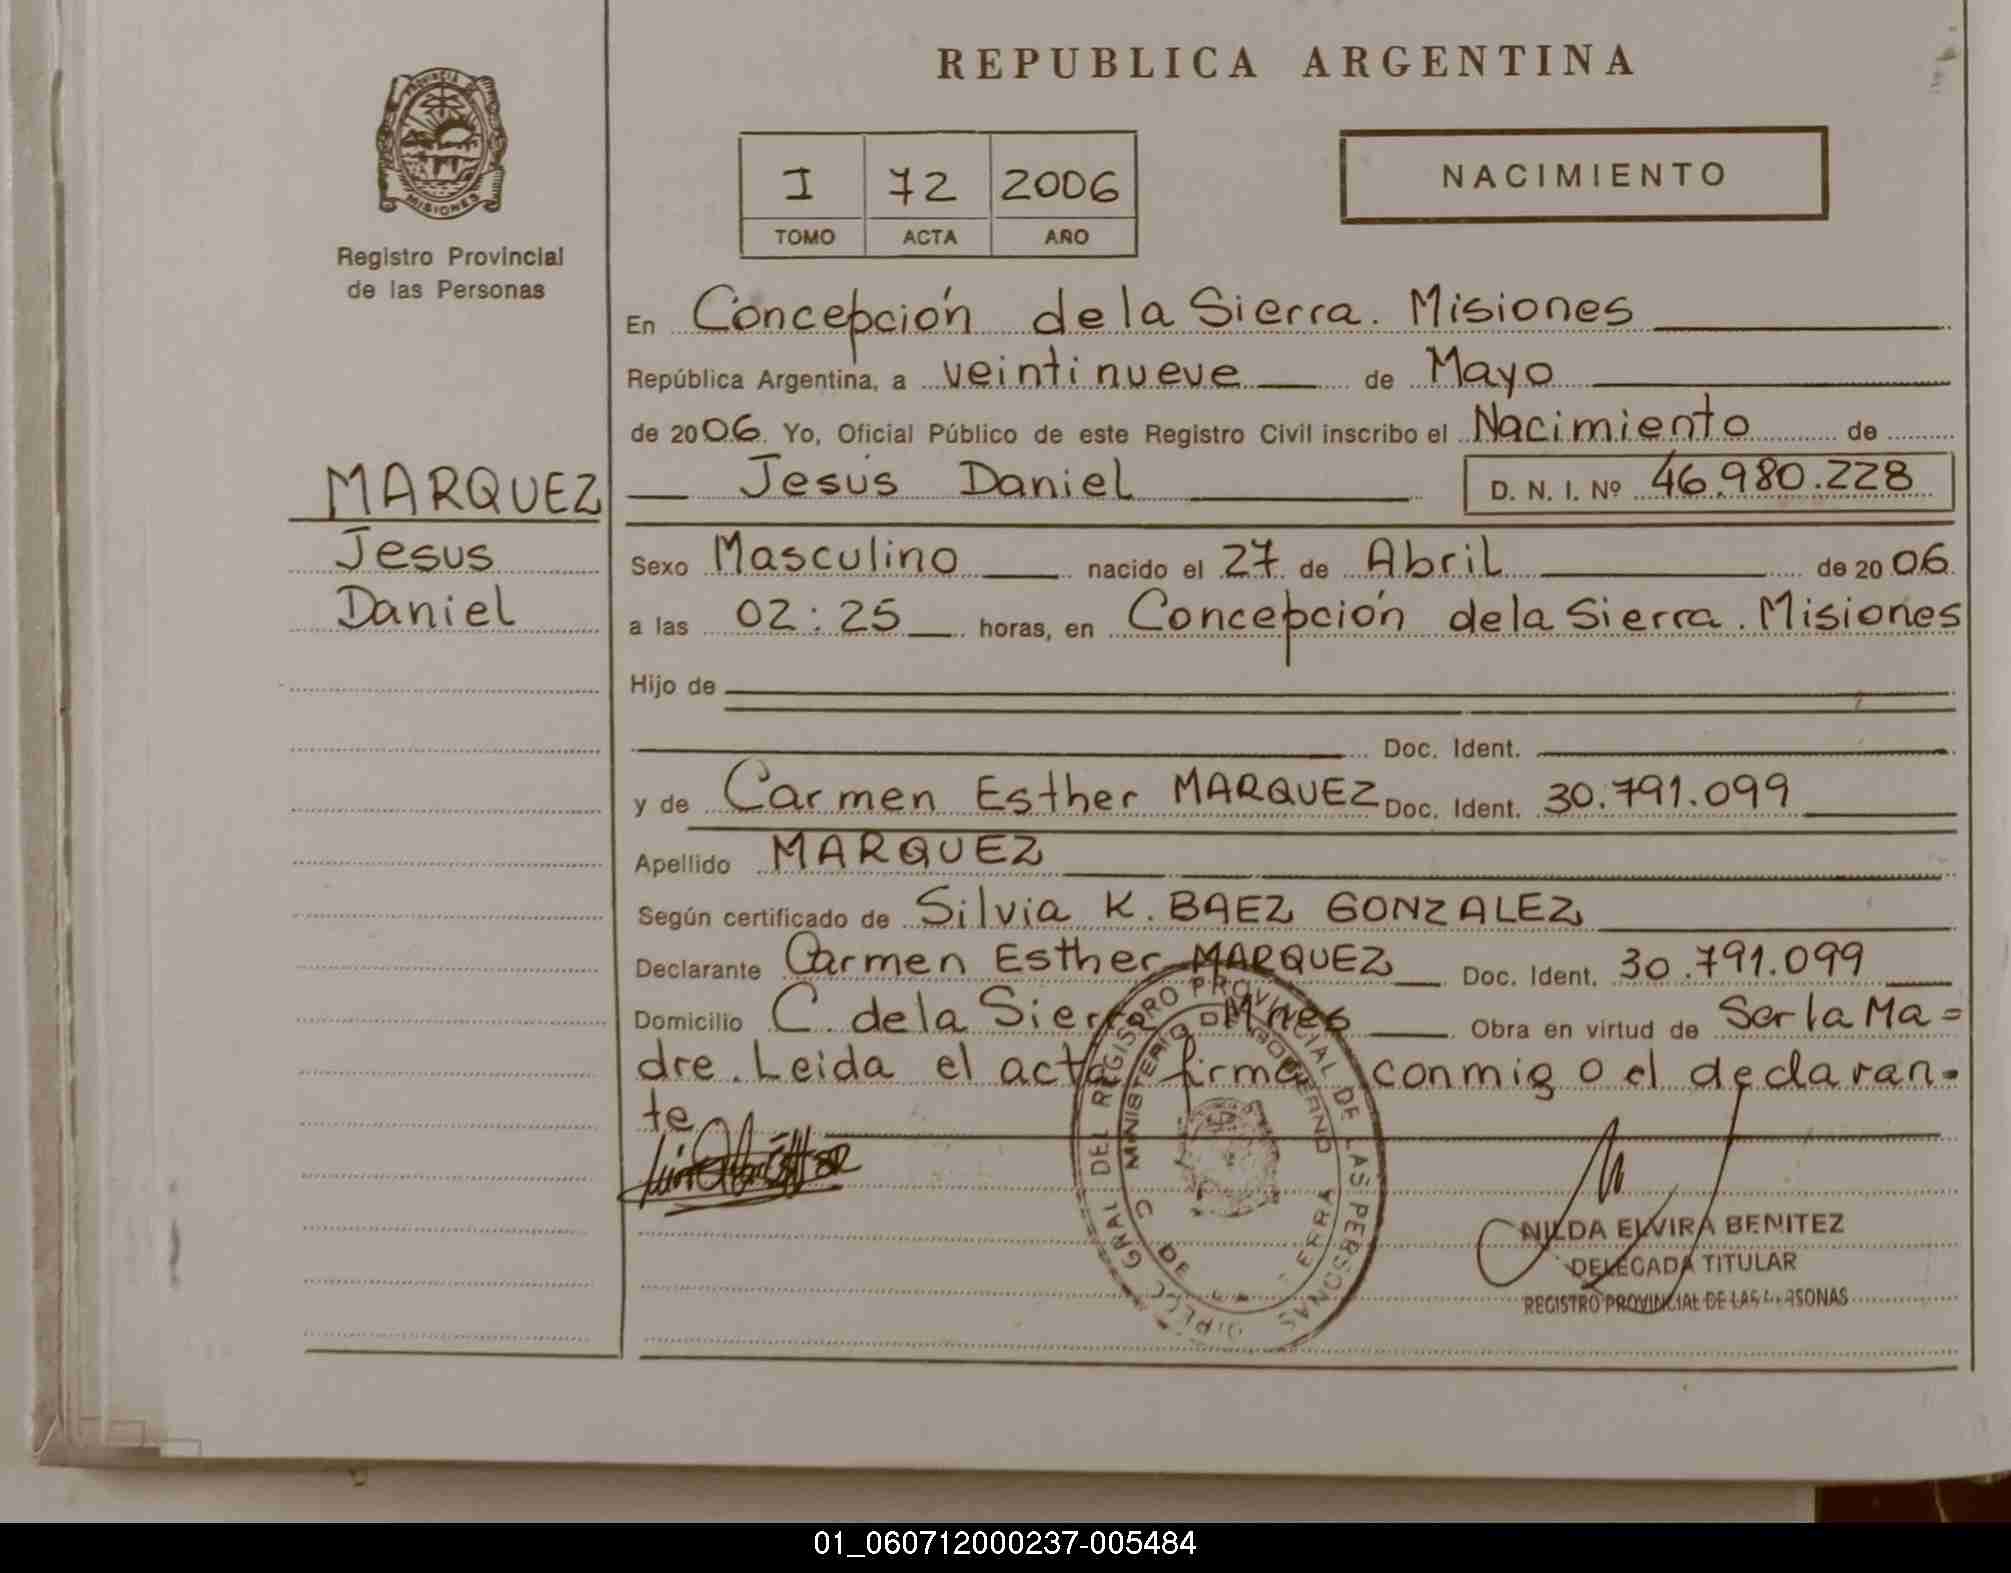 REPUBLICA ARGENTINA
PROVINCIA DE MISIONES
Registro Provincial
de las Personas
I 72 2006
TOMO ACTA AÑO
NACIMIENTO
En Concepción de la Sierra. Misiones
República Argentina, a veintinueve de Mayo
de 2006. Yo, Oficial Público de este Registro Civil inscribo el Nacimiento de
Jesus Daniel D. N. I. Nº 46.980.228
MARQUEZ
Jesus
Daniel
Sexo Masculino nacido el 27 de Abril de 2006
a las 02:25 horas, en Concepción de la Sierra. Misiones
Hijo de
Doc. Ident.
y de Carmen Esther MARQUEZ Doc. Ident. 30.791.099
Apellido MARQUEZ
Según certificado de Silvia K. BAEZ GONZALEZ
Declarante Carmen Esther MARQUEZ Doc. Ident. 30.791.099
Domicilio C. de la Sierra Mnes Obra en virtud de Ser la Ma=
dre. Leida el acta firma conmigo el declaran-
te
REGISTRO PROVINCIAL DE LAS PERSONAS
MINISTERIO DE GOBIERNO
NILDA ELVIRA BENITEZ
DELEGADA TITULAR
REGISTRO PROVINCIAL DE LAS PERSONAS
01_060712000237-005484